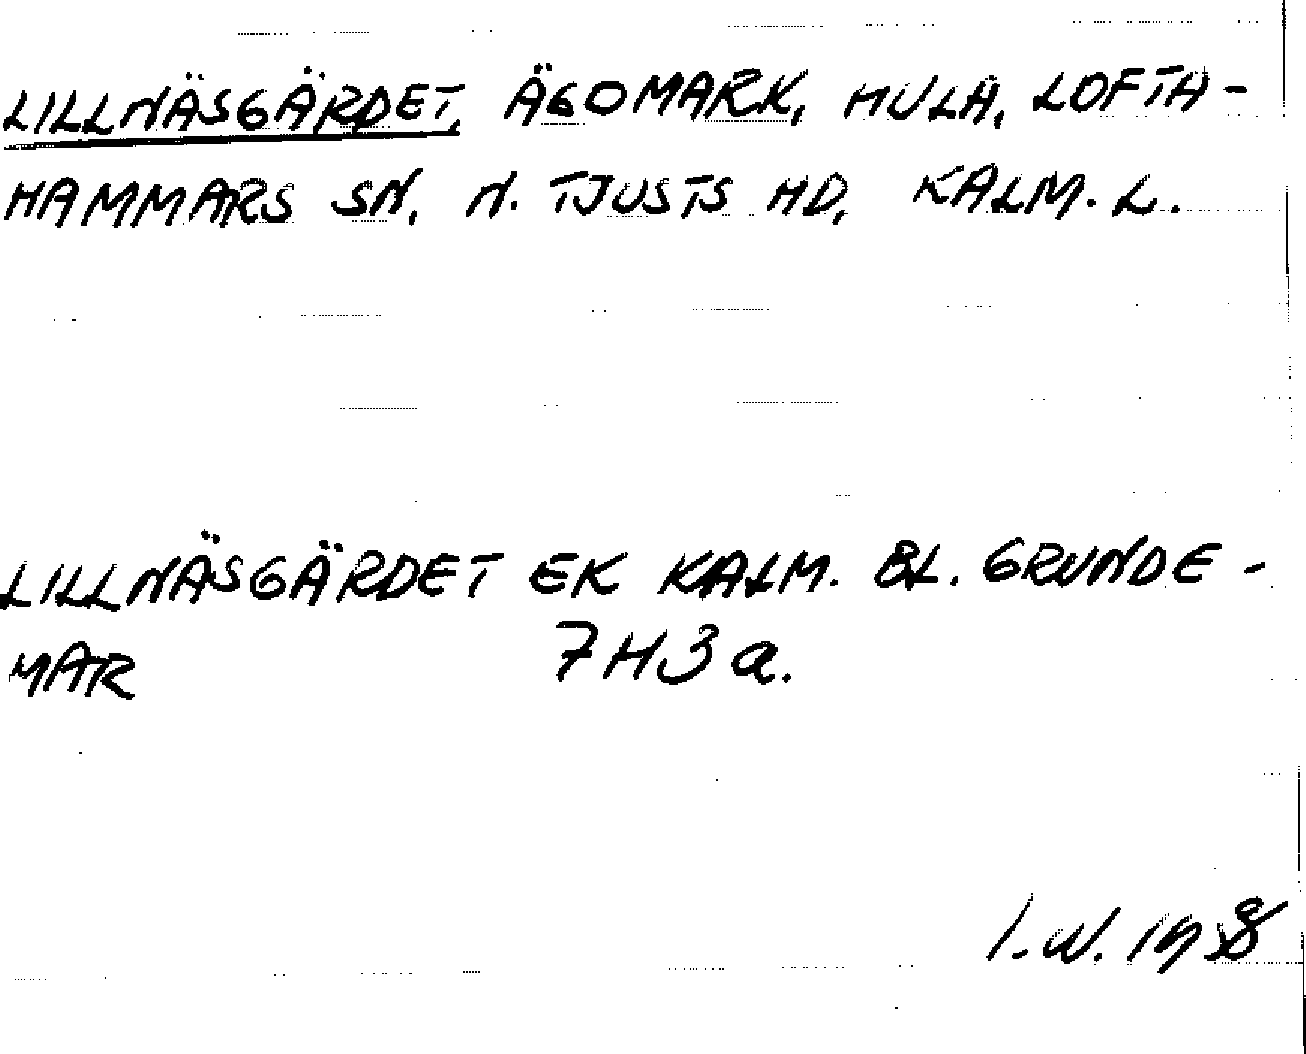 LILLNÄSGÄRDET, ÄGOMARK, HULA, LOFTA-
HAMMARS SN, N. TJUSTS HD, KALM. L.
LILLNÄSGÄRDET EK KALM. BL. GRUNDE-
MAR 7H3a.
I.W.